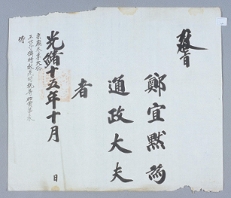 敎旨
鄭宜默爲
通政大夫
者
光緖十五年十月　日